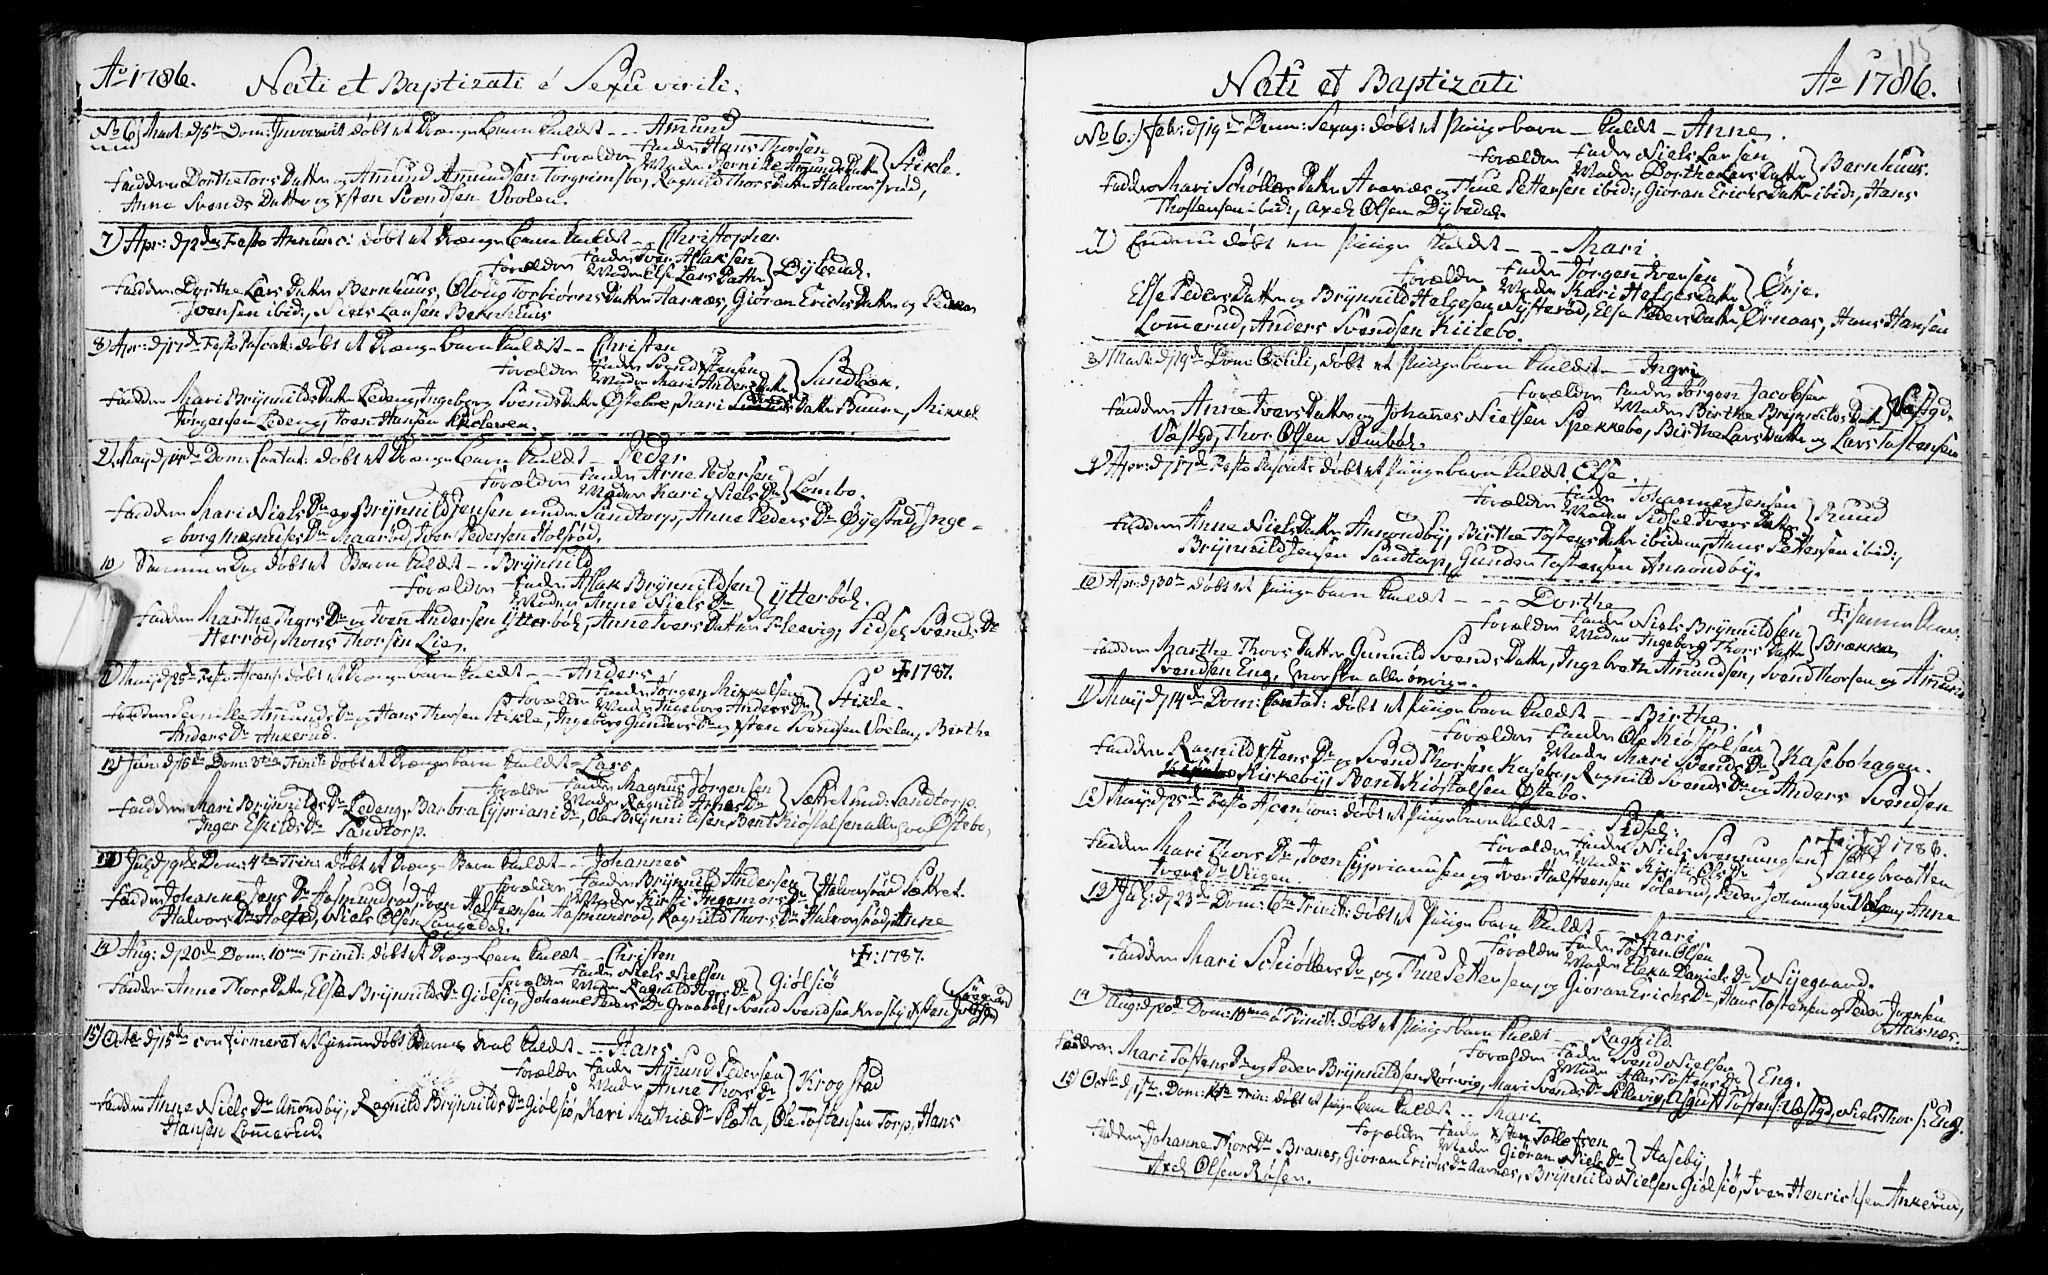 Ao 1786. Nati et Baptizati é Sexu virili.
No 6) Mart: d 5te Dom: Invocavit døbt et Drenge Barn kaldt --- Amund
Forældre Fader Hans Thorsen
Moder Pernille Amunds Datter } Stikle.
Faddere Dorthe Tors Datter og Amund Amundsen Torgrimsbye, Ragnild Thors Datter Halvorsrud,
Anne Svends Datter og Østen Svendsen Voolen.
7) Apr: d 2den Festo Annunc: døbt et Drenge Barn kaldt -- Christopher
Forældre Fader Iver Aslaksen
Moder Else Lars Datter } Dybedal.
Faddere Dorthe Lars Datter Bernhuus, Oloug Torbiørns Datter Harnæs, Giøran Erichs Datter og Peder
Iversen ibid:, Niels Larsen Bernhuus
8) Apr: d 17de Festo Pascat: døbt et Drenge barn kaldt -- Christen
Forældre Fader Svend Østensen
Moder Mari Anders Datter } Sandbæk.
Faddere Mari Brynnilds Datter Ledeng, Ingeborg Svends Datter Østebøe, Mari Datter Buure, Mikkel
Jørgensen Ledeng, Joen Hansen
9) Maij d 14de Dom: Cantat: døbt et Drenge Barn kaldt -- Peder
Forældre Fader Arne Pedersen
Moder Kari Niels Dr } Lombo.
Faddere Mari Niels Dr og Brynnild Jensen under Sandtorp, Anne Peders Dr Øyestad, Inge-
borg Magnuses Dr Maarød, Iver Pedersen Holsrød.
10 Samme Dag døbt et Barn kaldt -- Brynnild
Forældre Fader Aslak Brynnildsen
Moder Anne Niels Dr } Ytterbøl.
Faddere Marthe Thors Dr og Iven Andersen Ytterbøl, Anne Ivers Datter Klevig, Sidsel Svends Dr
Herrød, Mons Thorsen Lie.
11) Maij d 25de Festo Ascens: døbt et Drenge barn kaldt --- Anders ✝ 1787.
Forældre Fader Jørgen Mikkelsen
Moder Ingeborg Anders Dr } Stikle.
Faddere Pernille Amunds Dr og Hans Thorsen Stikle, Ingeborg Gunders Dr og Østen Svendsen Voolen, Birthe
Anders Dr Ankerud.
12) Jun: d Dom: 3tia Trinit: døbt et Drenge barn kaldt - Lars
Forældre Fader Magnus Jørgensen
Moder Ragnild Arnes Dr } Sættret und: Sandtorp.
Faddere Mari Brynnilds Dr Ledeng, Barbra Cypriani Dr, Ole Brynnildsen, Bent Kiøstolsen alle paa Østebo,
Inger Eskilds Dr Sandtorp.
13) Julj d 9de Dom: 4ta Trin: døbt et Drenge Barn kaldt -- Johannes
Forældre Fader Brynnild Andersen
Moder Kirsti Ingemors Dr } Halvorsrød Sættret.
Faddere Johanne Jens Dr Aasmundrød, Iven Halstensen Aasmundrød, Ragnild Thors Dr Halvorsrød, Anne
Halvors Dr Holtet, Niels Olsen Langedal.
14) Aug: d 20de Dom: 10ma Trinit: døbt et Drenge barn kaldt -- Christen ✝: 1787.
Forældre Fader Niels Nielsen
Moder Ragnild Ivers Dr } Giølsiø
Faddere Anne Thors Datter, Else Brynnilds Dr Giølsiø, Johanne Peders Dr Graabøl, Svend Svendsen Krosby, Østen Iversen
15) Octbr d 15de confirmeret et hiemmedøbt Barns Daab kaldt -- Hans
Forældre Fader Amund Pedersen
Moder Anne Thors Dr } Krogstad
Faddere Anne Niels Dr Amondby, Ragnild Brynnilds Dr Giølsiø, Kari Mathiæ Dr Sletta, Ole Tostensen Torp, Hans
Hansen Lomerud.
115
Nati et Baptizati Ao 1786.
No 6.) Febr: d 19de Dom: Sexag: døbt et Pigebarn - kaldt - Anne.
Forældre Fader Niels Larsen
Moder Dorthe Lars Datter } Bernhuus.
Faddere Mari Schøllers Datter Aarnæs og Thue Pettersen ibid:, Giøran Erichs Datter ibid:, Hans
Thostensen ibid:, Axel Olsen Dybedal.
7) Endnu døbt en Pige kaldt --- Mari.
Forældre Fader Jørgen Iversen
Moder Kari Helges Datter } Ørje.
Else Peders Datter og Brynnild Helgesen Nysterød, Else Peders Datter Ørnaas, Hans Hansen
Lomerud, Anders Svendsen Kiilebo.
8) Mart: d 19de Dom: Oculi, døbt et Pigebarn kaldt -- Ingri
Forældre Fader Jørgen Jacobsen
Moder Birthe Brynnilds Datter } Væstgd.
Faddere Anne Ivers Datter og Johannes Nielsen Spekkebo, Birthe Lars Datter og Lars Tostensen
Væstgd, Thor Olsen Sombøl.
9) Apr: d 17de Festo Pascat: døbt et Pigebarn kaldt Else.
Forældre Fader Johannes Jensen
Moder Sidsel Ivers Datter } Ruud
Faddere Anne Niels Datter Amondby, Birthe Tostens Datter ibidem, Hans Pettersen ibid:,
Brynnild Jensen Sandtorp, Gunder Tostensen Amondby.
10) Apr: d 30te døbt et Pigebarn kaldt --- Dorthe ✝ samme Aar.
Forældre Fader Niels Brynnildsen
Moder Ingeborg Thors Datter } Brække
Faddere Marthe Thors Datter, Gunnild Svends Datter, Ingebreth Amundsen, Svend Thorsen og Amund
Svendsen Eng,
11) Maij d 14de Dom: Cantat: døbt et Pigebarn kaldt -- Birthe.
Forældre Fader Ole Kiøstolsen
Moder Mari Svends Dr } Kasebohagen.
Faddere Ragnild Østens Dr og Svend Thorsen Kasebo, Ragnild Svends Dr og Anders Svendsen
Kirkeby, Bent Kiøstolsen Østebo.
12) Maij d 25de Festo Ascension: døbt et Pigebarn kaldt -- Sidsel. ✝ 1786.
Forældre Fader Niels Svennungsen
Moder Kirsti Ols Dr } Langbraatten
Faddere Mari Thors Dr, Iven Cypriannsen og Iver Halstensen Solerud, Peder Johannesen Viigen, Anne
Ivers Dr Viigen.
13) Julj d 23de Dom: 6ta Trinit: døbt et Pigebarn kaldt -- Mari
Forældre Fader Tosten Olsen
Moder Elexa Daniels Dr } Nyegaard.
Faddere Mari Schiøllers Dr, og Thue Pettersen, og Giøran Erichs Dr, Hans Tostensen og Peder Iversen
Aarnæs.
14) Aug: d 20de Dom: 10ma á Trinit: døbt et Pigebarn kaldt -- Ragnild.
Forældre Fader Svend Nielsen
Moder Tostens Dr } Eng.
Faddere Mari Tostens Dr og Peder Brynnildsen Rørvig, Mari Svends Dr Klevig, Tostens: Væstgd, Niels Thors: Eng.
15) Octbr d 1ste Dom: Trin: døbt et Pigebarn kaldt -- Mari
Forældre Fader Østen Tollefsen
Moder Giøran Niels Dr } Aaseby
Faddere Johanne Thors Dr Branes, Giøran Erichs Dr Aarnæs, Brynnild Nielsen Giølsiø, Iver Henrichsen Ankerud,
Axel Olsen Røsen.